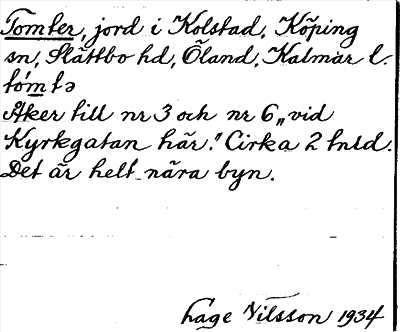 Tomter, jord i Kolstad, Köping
sn, Slättbo hd, Öland, Kalmar l.
Åker till nr 3 och nr 6 „vid
Kyrkgatan här." Cirka 2 tnld.
Det är helt nära byn.
Hage Nilsson 1934